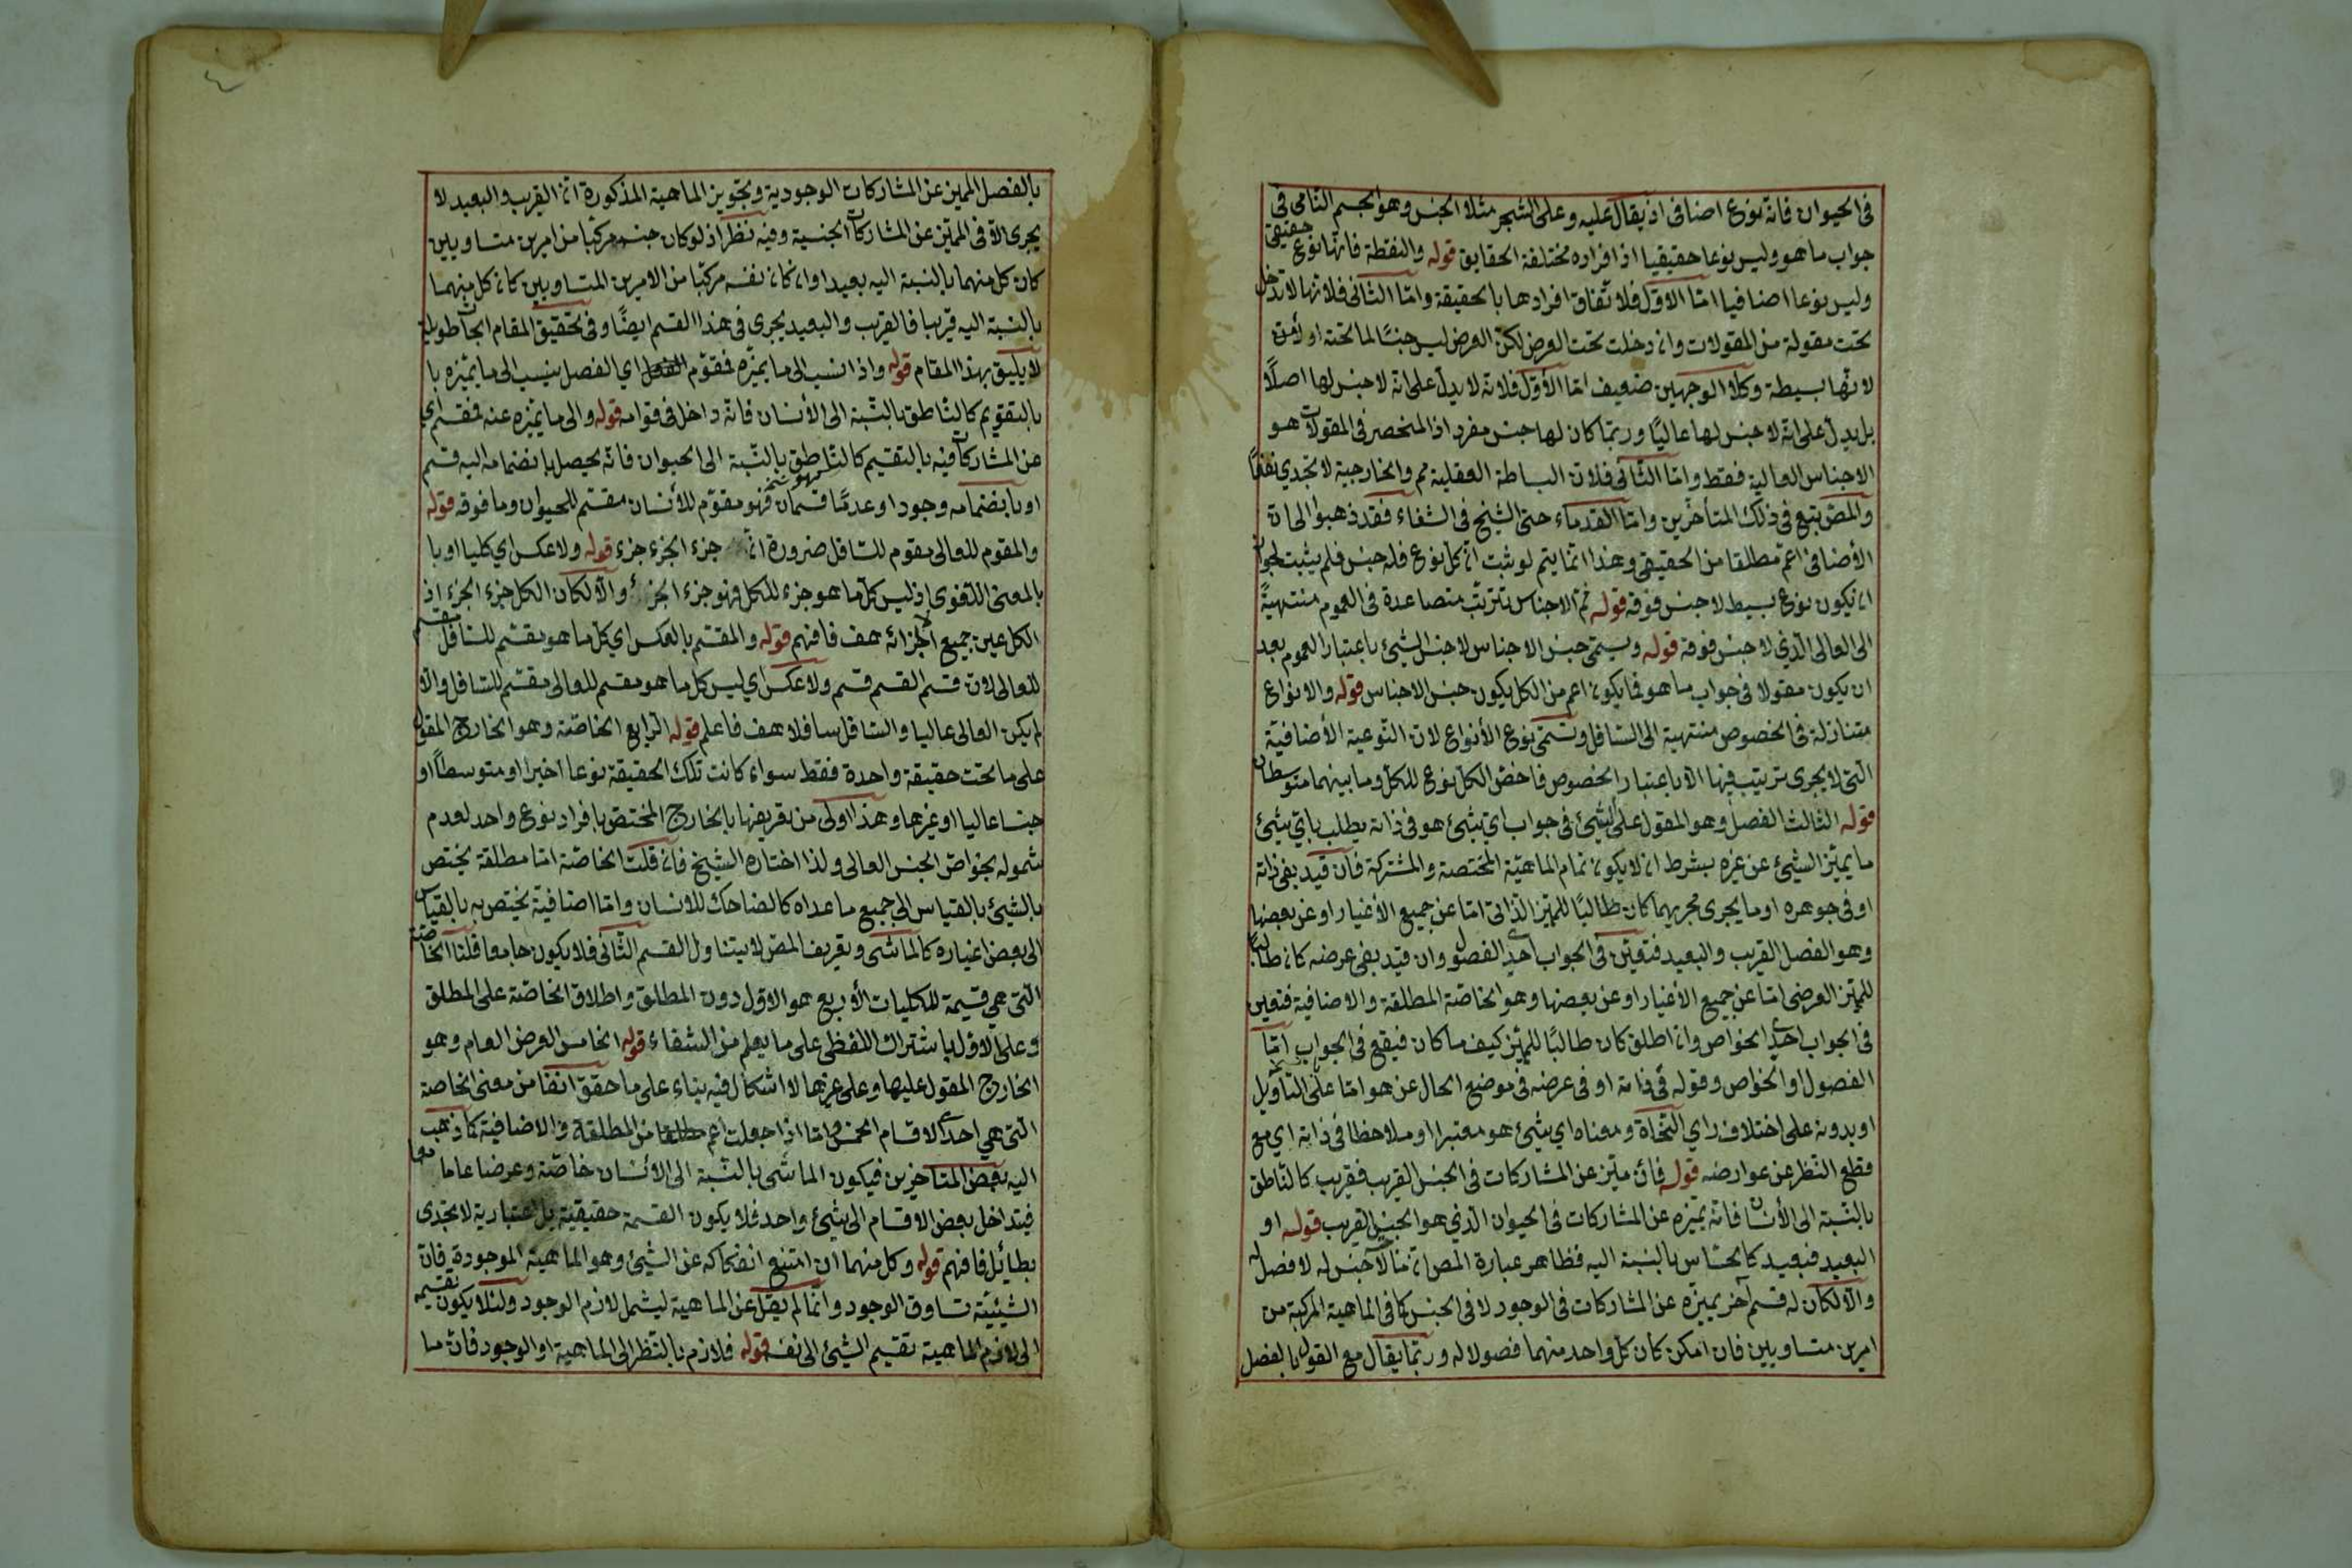 في الحيوان فانه نوع اضافي اذ يقال عليه وعلى الشجر مثلا الجنس وهو الجسم النامي في
جواب ما هو وليس نوعا حقيقيا اذ افراده مختلفة الحقايق قوله والنقطة فانها نوع حقيقي
وليس نوعا اضافيا امّا الاوّل فلاتّفاق افرادها بالحقيقة وامّا الثاني فلانها لا تدخل
تحت مقولة من المقولات وان دخلت تحت العرض لكن العرض ليس جنسًا لما تحته او
لانّها بسيطة وكلا الوجهين ضعيف امّا الأوّل فلانه لا يدلّ على انه لا جنس لها اصلاً
بل يدلّ على انه لا جنس لها عاليًا وربّما كان لها جنس مفرد اذ المنحصر في المقولات هو
الاجناس العالية فقط وامّا الثّاني فلانّ البساطة العقلية مم والخارجية لا تجدي نفعًا
والمص تبع في ذلك المتأخّرين وامّا القدماء حتى الشيخ في الشفاء فقد ذهبوا الى انّ
الأضافى اعمّ مطلقا من الحقيقي وهذا انّما يتم لو ثبت انّ كلّ نوع فله جنس فلم يثبت لجواز
ان يكون نوع بسيط لا جنس فوقه قوله ثمّ الاجناس تترتّب متصاعدة في العموم منتهيةً
الى العالى الّذي لا جنس فوقه قوله ويسمّى جنس الاجناس لا جنس الشيئ باعتبار العموم بعد
ان يكون مقولا في جواب ما هو فايكون اعم من الكل يكون جنس الاجناس قوله والانواع
متنازلة في الخصوص منتهية الى السّافل وتسمّى نوع الأنواع لانّ النّوعية الأضافيّة
الّتى لا يجرى ترتيب فيها الا باعتبار الخصوص فاخصّ الكل نوع للكل وما بينهما متوسطان
قوله الثالث الفصل وهو المقول على الشيئ في جواب ايّ شيئ هو في ذاته يطلب بايّ شيئ
ما يميّز الشيئ عن غيره بشرط ان لا يكون تمام الماهيّة المختصة والمشتركة فان قيّد بفي ذاته
او في جوهره او ما يجرى مجريهما كان طالبًا للمميّز الذّاتى امّا عن جميع الأغيار او عن بعضها
وهو الفصل القريب والبعيد فتعيّن في الجواب احد الفصول وان قيّد بفي عرضه كان طالبًا
للمميّز العرضى امّا عن جميع الأغيار او عن بعضها وهو الخاصّة المطلقة والاضافية فتعين
في الجواب احدى الخواص وان اطلق كان طالبًا للمميّز كيف ما كان فيقع في الجواب امّا
الفصول او الخواص وقوله في ذاته او في عرضه في موضع الحال عن هو امّا على التأويل
او بدونه على اختلاف راي النّحاة ومعناه اي شيئ هو معتبرا او ملاحظا في ذاته اي مع
قطع النّظر عن عوارضه قوله فان ميّز عن المشاركات في الجنس القريب فقريب كالنّاطق
بالنّسبة الى الأنسان فانّه يميّزه عن المشاركات في الحيوان الّذي هو الجنس القريب قوله او
البعيد فبعيد كالحسّاس بالنسبة اليه فظاهر عبارة المص انّ ما لا جنس له لا فصل له
والاّ لكان له قسم آخر يميّزه عن المشاركات في الوجود لا في الجنس كما في الماهية المركبة من
امرين متساويين فان امكن كان كلّ واحد منهما فصولا له وربّما يقال مع القول بالفصل
بالفصل المميز عن المشاركات الوجودية وتجويز الماهية المذكورة انّ القريب والبعيد لا
يجرى الاّ في المميّز عن المشاركات الجنسية وفيه نظر اذ لو كان جنس مركّبا من امرين متساويين
كان كلّ منهما بالنسبة اليه بعيدا وان كان نفسه مركّبا من الامرين المتساويين كان كلّ منهما
بالنسبة اليه قريبا فالقريب والبعيد يجرى في هذا القسم ايضًا وفى تحقيق المقام ابحاث طويلة
لا يليق بهذا المقام قوله واذا نسب الى ما يميّزه فمقوّم اي الفصل ينسب الى ما يميّزه با
بالتقويم كالنّاطق بالنّسبة الى الأنسان فانّه داخل في قوامه قوله والى ما يميّزه عنه فمقسّم اي
عن المشاركات فيه بالتقسيم كالنّاطق بالنّسبة الى الحيوان فانّه يحصل بانضمامه اليه قسم
او بانضمامه وجودا وعدمًا قسمان فهو مقوّم للأنسان مقسّم للحيوان وما فوقه قوله
والمقوم للعالى مقوم للسّافل ضرورة انّ جزء الجزء جزء قوله ولا عكس اي كليا او با
بالمعنى اللّغوى اذ ليس كلّ ما هو جزء للكل فهو جزء الجزء والاّ لكان الكل جزء الجزء اذ
الكل عين جميع الاجزائه هف فافهم قوله والمقسّم بالعكس اي كلّ ما هو مقسّم للسّافل مقسم
للعالى لانّ قسم القسم قسم ولا عكس اي ليس كل ما هو مقسم للعالى مقسّم للسّافل والّا
لم يكن العالى عاليا والسّافل سافلا هف فاعلم قوله الرّابع الخاصّة وهو الخارج المقول
على ما تحت حقيقة واحدة فقط سواء كانت تلك الحقيقة نوعا اخيرا او متوسطاً او
جنسا عاليا او غيرها وهذا اولى من تعريفها بالخارج المختصّ بافراد نوع واحد لعدم
شموله بخواصّ الجنس العالى ولذا اختاره الشيخ فان قلت الخاصّة امّا مطلقة يختص
بالشيئ بالقياس الى جميع ما عداه كالضاحك للانسان وامّا اضافيّة يختص به بالقياس
الى بعض اغياره كالماشى وتعريف المصّ لا يتناول القسم الثّانى فلا يكون جامعا قلنا الخاصّة
الّتى هي قسيمة للكليات الأربع هو الاوّل دون المطلق واطلاق الخاصّة على المطلق
وعلى الاوّل باشتراك اللفظي على ما يعلم من الشفاء قوله الخامس العرض العام وهو
الخارج المقول عليها وعلى غيرها لا اشكال فيه بناء على ما حقق انفا من معنى الخاصة
الّتى هي احدى الاقسام الخمس وامّا اذا جعلت اعم من المطلقة والاضافية كما ذهب
اليه بعض المتأخرين فيكون الماشى بالنّسبة الى الانسان خاصّة وعرضا عاما معا
فيتداخل بعض الاقسام الى شيئ واحد فلا يكون القسمة حقيقيّة بل اعتبارية لا تجدى
بطائل فافهم قوله وكل منهما ان امتنع انفكاكه عن الشيئ وهو الماهية الموجودة فانّ
الشيئيّة تساوق الوجود وانّما لم يقل عن الماهية ليشمل لازم الوجود ولئلا يكون تقسيمه
الى لازم الماهية تقسيم الشيئ الى نفسه قوله فلازم بالنّظر الى الماهية او الوجود فانّ ما